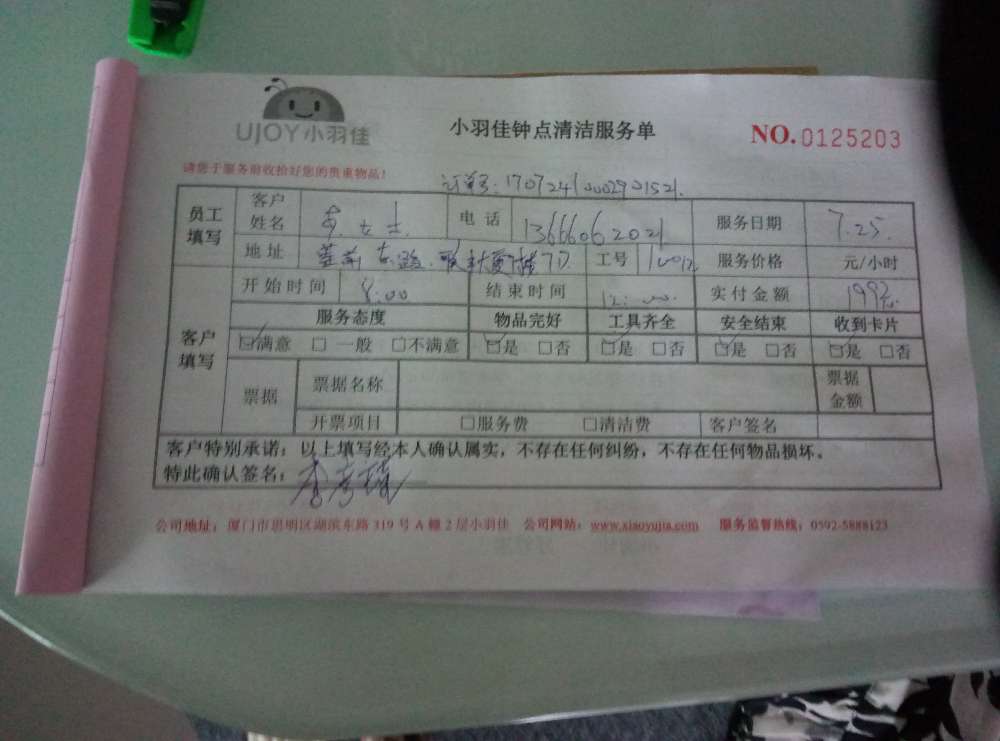 UJOY小羽佳
小羽佳钟点清洁服务单
NO.0125203
请您于服务前收拾好您的贵重物品！
订单号：17072410002901521
员工填写 客户姓名 女士 电话 13666062021 服务日期 7.25
地址 工号 服务价格 元/小时
开始时间 8:00 结束时间 12:00 实付金额 199元
客户填写 服务态度 物品完好 工具齐全 安全结束 收到卡片
☑满意 □一般 □不满意 ☑是 □否 ☑是 □否 ☑是 □否 ☑是 □否
票据 票据名称 票据金额
开票项目 □服务费 □清洁费 客户签名
客户特别承诺：以上填写经本人确认属实，不存在任何纠纷，不存在任何物品损坏。
特此确认签名：
公司地址：厦门市思明区湖滨东路319号A幢2层小羽佳 公司网站：www.xiaoyujia.com 服务监督热线：0592-5888123